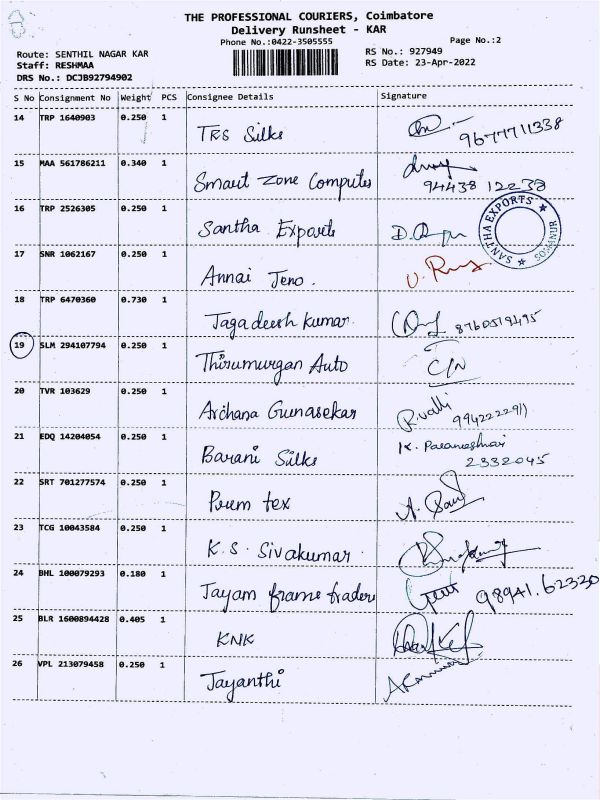 THE PROFESSIONAL COURIERS, Coimbatore
Delivery Runsheet - KAR
Phone No.:0422-3505555
Page No.:2
Route: SENTHIL NAGAR KAR
Staff: RESHMAA
DRS No.: DCJB92794902
RS No.: 927949
RS Date: 23-Apr-2022
S No Consignment No Weight PCS Consignee Details Signature
14 TRP 1640903 0.250 1 TRS Silks 9677711338
15 MAA 561786211 0.340 1 Smart Zone Computes 94438 12233
16 TRP 2526305 0.250 1 Santha Exports
SANTHA EXPORTS ★ SOMANUR ★
17 SNR 1062167 0.250 1 Annai Jeno.
18 TRP 6470360 0.730 1 Jagadeesh kumar. 8760519495
19 SLM 294107794 0.250 1 Thirumurgan Auto C/N
20 TVR 103629 0.250 1 Archana Gunasekar R.valli 9942222911
21 EDQ 14204054 0.250 1 Barani Silks K. Paraneshwai 2332045
22 SRT 701277574 0.250 1 Prem tex
23 TCG 10043584 0.250 1 K.S. Sivakumar
24 BHL 100079293 0.180 1 Jayam frame traders 98941.62330
25 BLR 1600894428 0.405 1 KNK
26 VPL 213079458 0.250 1 Jayanthi